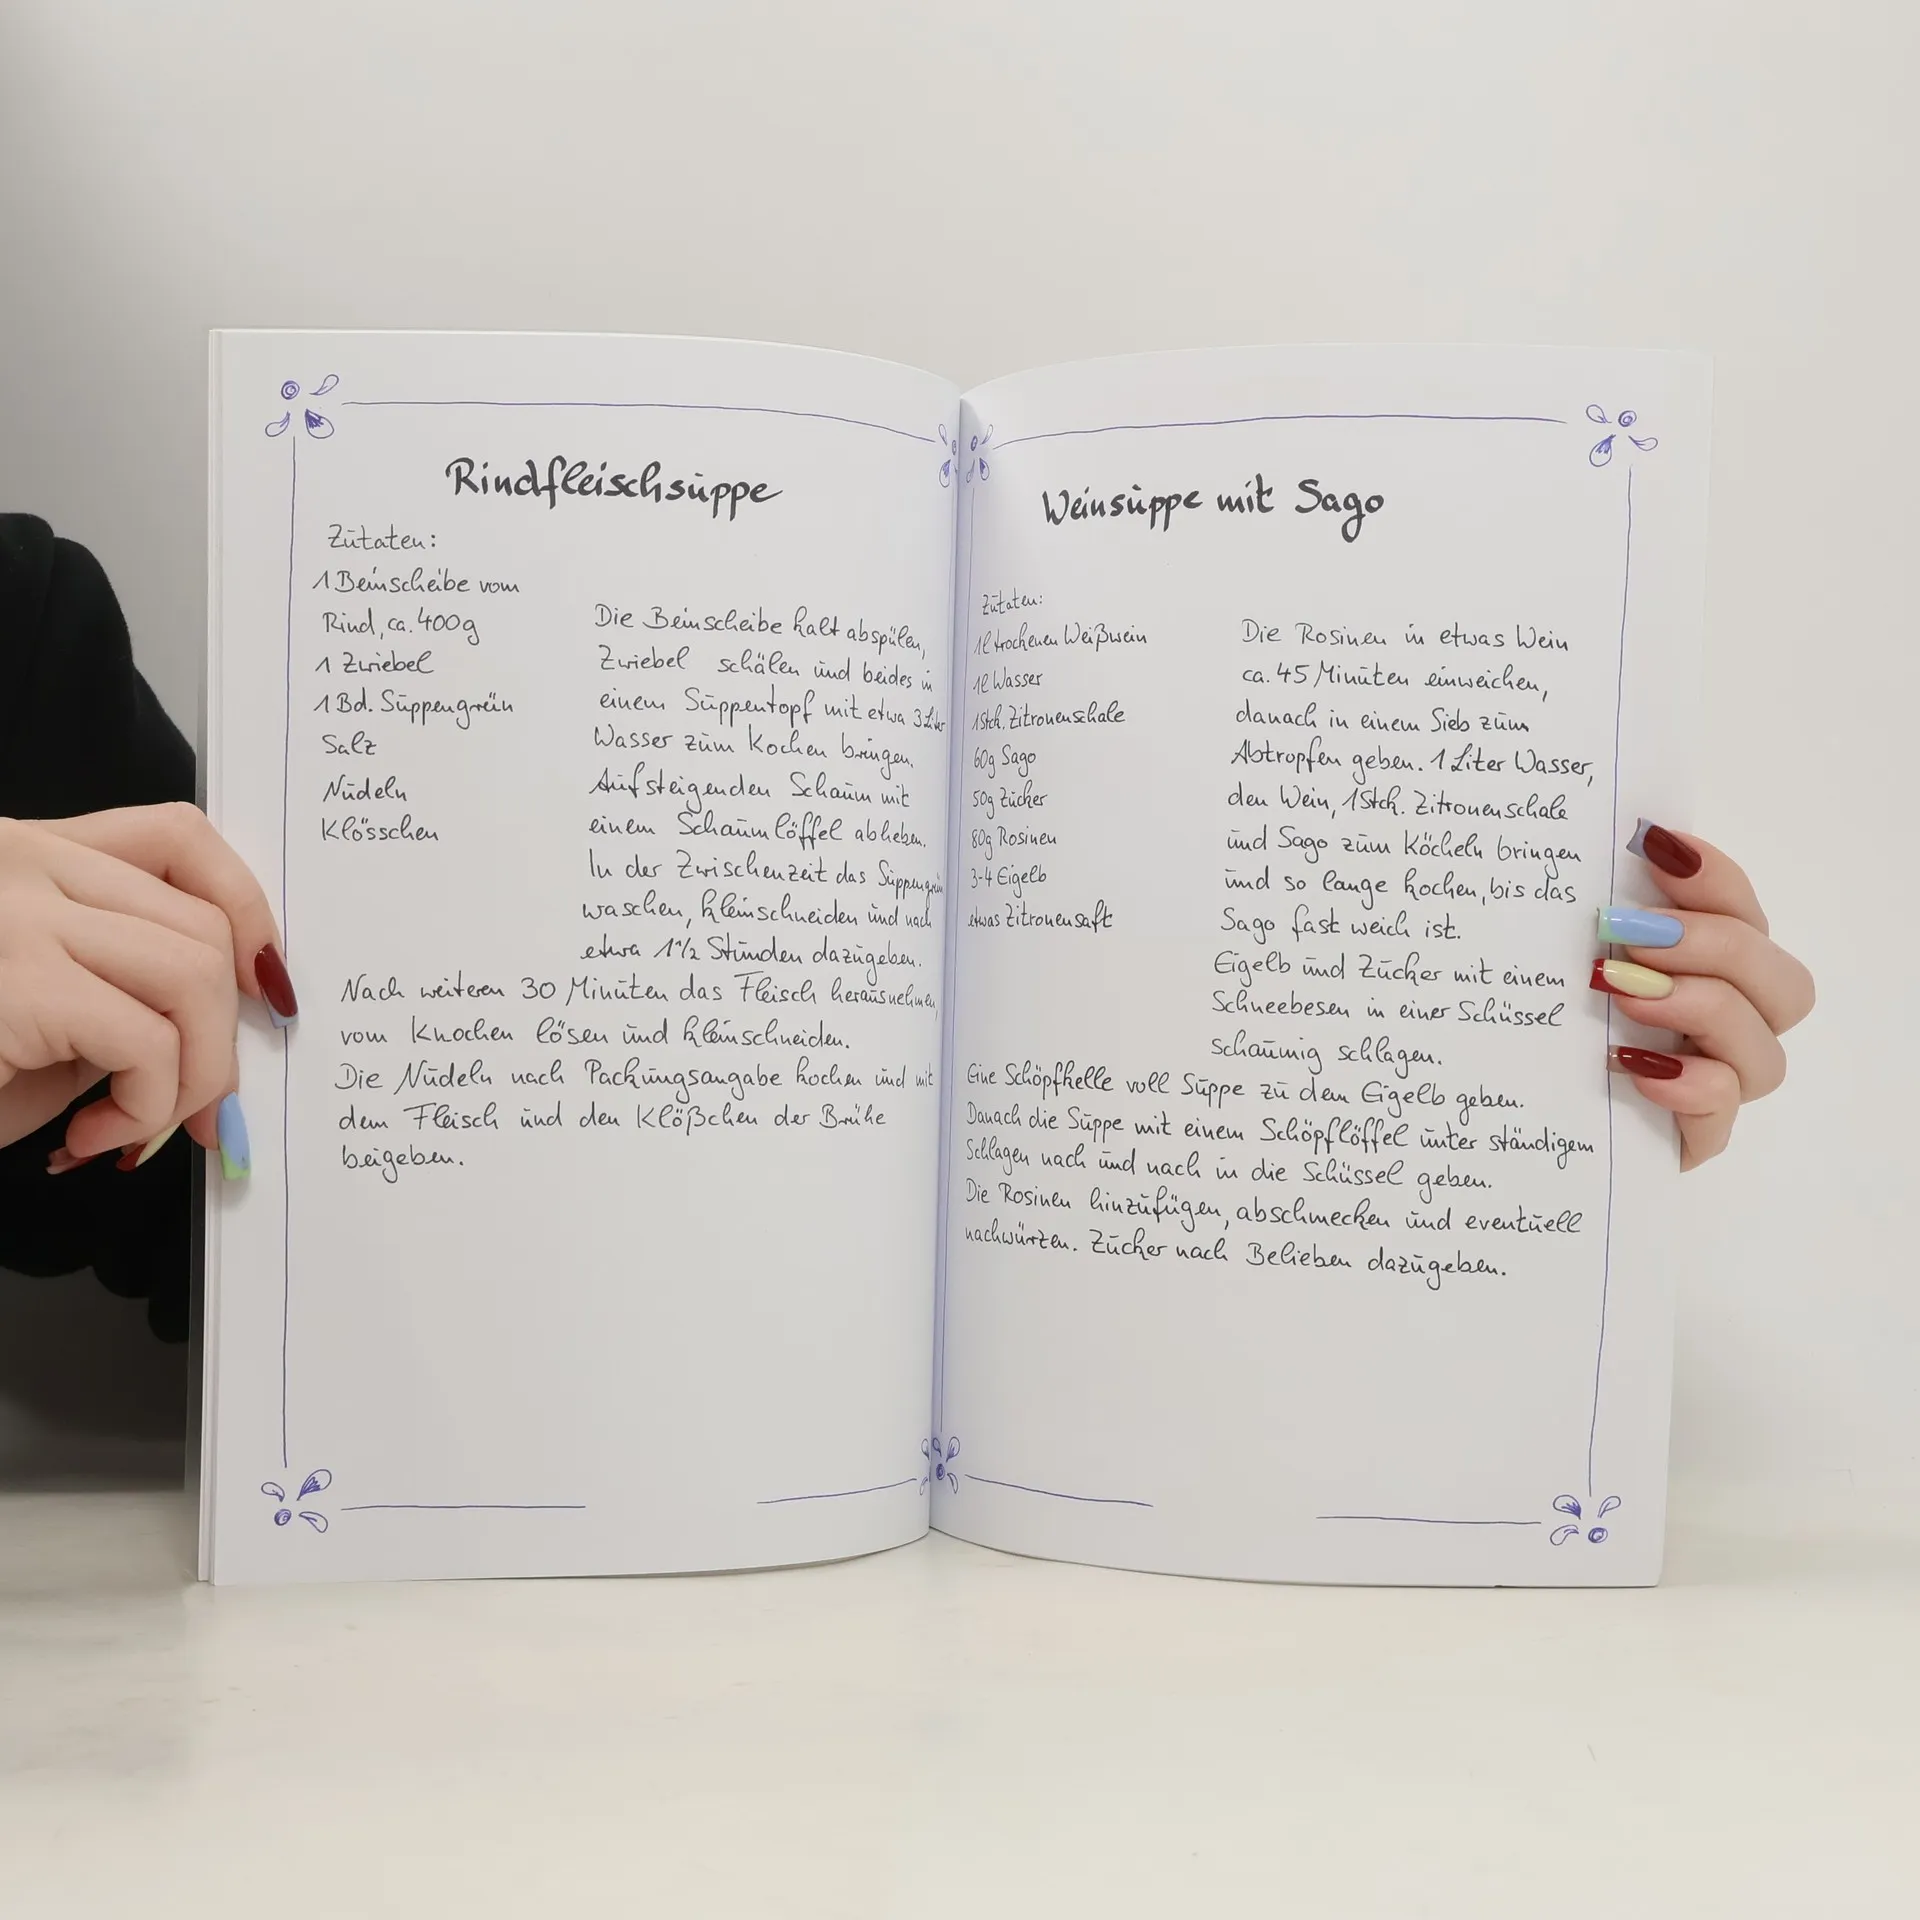 Rindfleischsuppe
Zutaten:
1 Beinscheibe vom
Rind, ca. 400g
1 Zwiebel
1 Bd. Suppengrün
Salz
Nudeln
Klösschen
Die Beinscheibe kalt abspülen,
Zwiebel schälen und beides in
einem Suppentopf mit etwa 3 Liter
Wasser zum Kochen bringen.
Aufsteigenden Schaum mit
einem Schaumlöffel abheben.
In der Zwischenzeit das Suppengrün
waschen, kleinschneiden und nach
etwa 1 1/2 Stunden dazugeben.
Nach weiteren 30 Minuten das Fleisch herausnehmen,
vom Knochen lösen und kleinschneiden.
Die Nudeln nach Packungsangabe kochen und mit
dem Fleisch und den Klößchen der Brühe
beigeben.
Weinsuppe mit Sago
Zutaten:
1l trockenen Weißwein
1l Wasser
1Stck. Zitronenschale
60g Sago
50g Zucker
80g Rosinen
3-4 Eigelb
etwas Zitronensaft
Die Rosinen in etwas Wein
ca. 45 Minuten einweichen,
danach in einem Sieb zum
Abtropfen geben. 1 Liter Wasser,
den Wein, 1Stck. Zitronenschale
und Sago zum Köcheln bringen
und so lange kochen, bis das
Sago fast weich ist.
Eigelb und Zucker mit einem
Schneebesen in einer Schüssel
schaumig schlagen.
Eine Schöpfkelle voll Suppe zu dem Eigelb geben.
Danach die Suppe mit einem Schöpflöffel unter ständigem
Schlagen nach und nach in die Schüssel geben.
Die Rosinen hinzufügen, abschmecken und eventuell
nachwürzen. Zucker nach Belieben dazugeben.